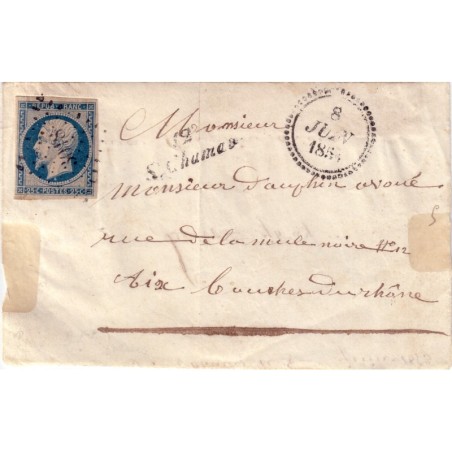 REPUB. FRANC.
25 C. POSTES 25 C.
12
St Chamas
8
JUIN
185
Monsieur
monsieur dauphin avoué
rue de la mule noire No 12
Aix Bouches du rhône